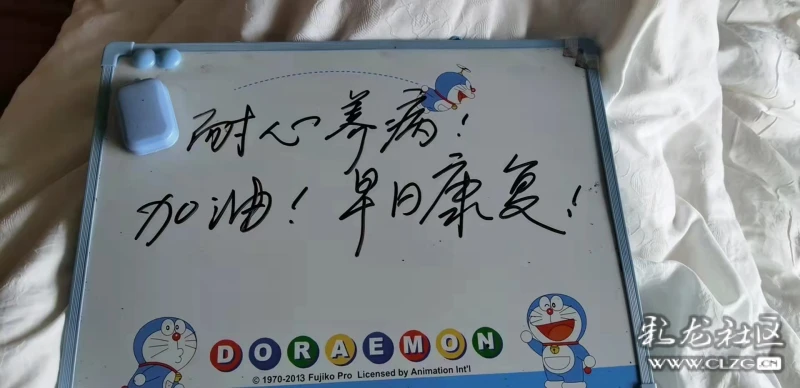 耐心养病！
加油！早日康复！
DORAEMON
© 1970-2013 Fujiko Pro Licensed by Animation Int'l
乳龙社区
WWW.CLZG.CN